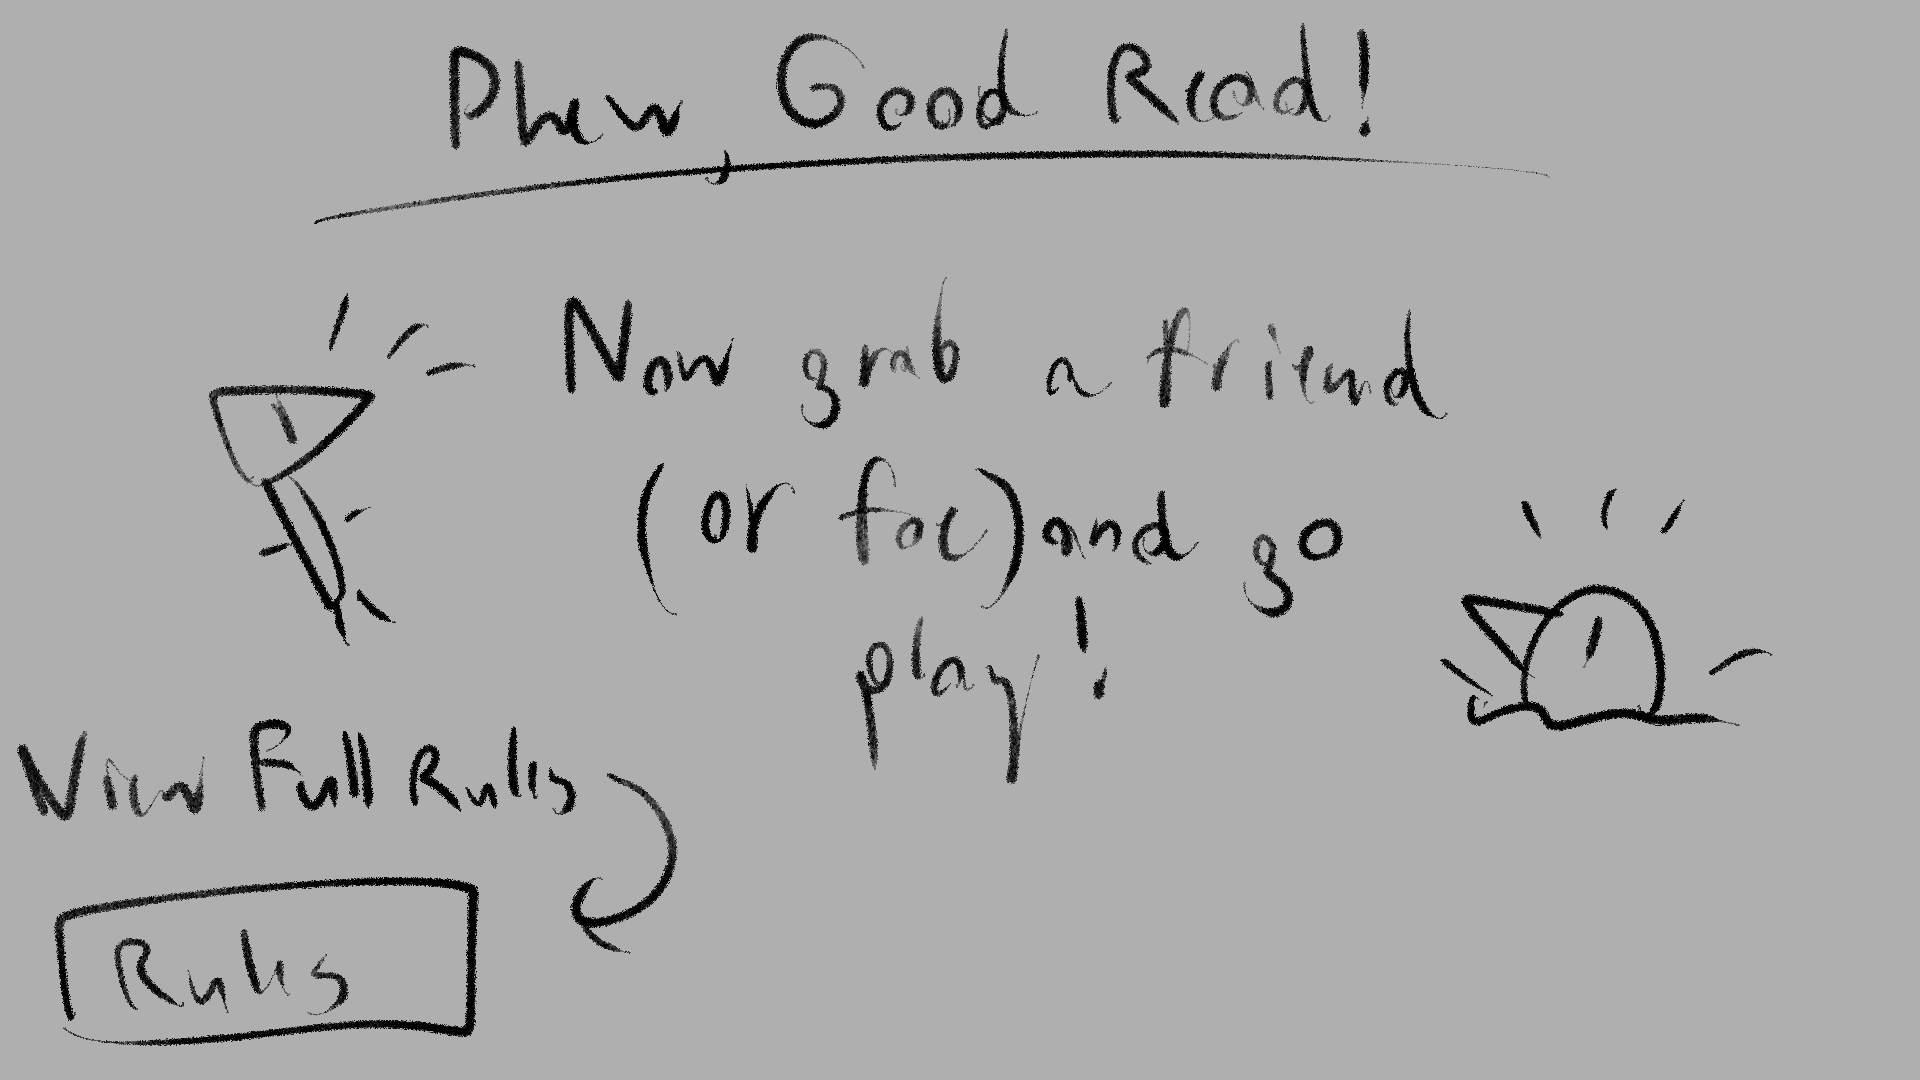 Phew, Good Read!
Now grab a friend
(or foe) and go
play!
View Full Rules
Rules